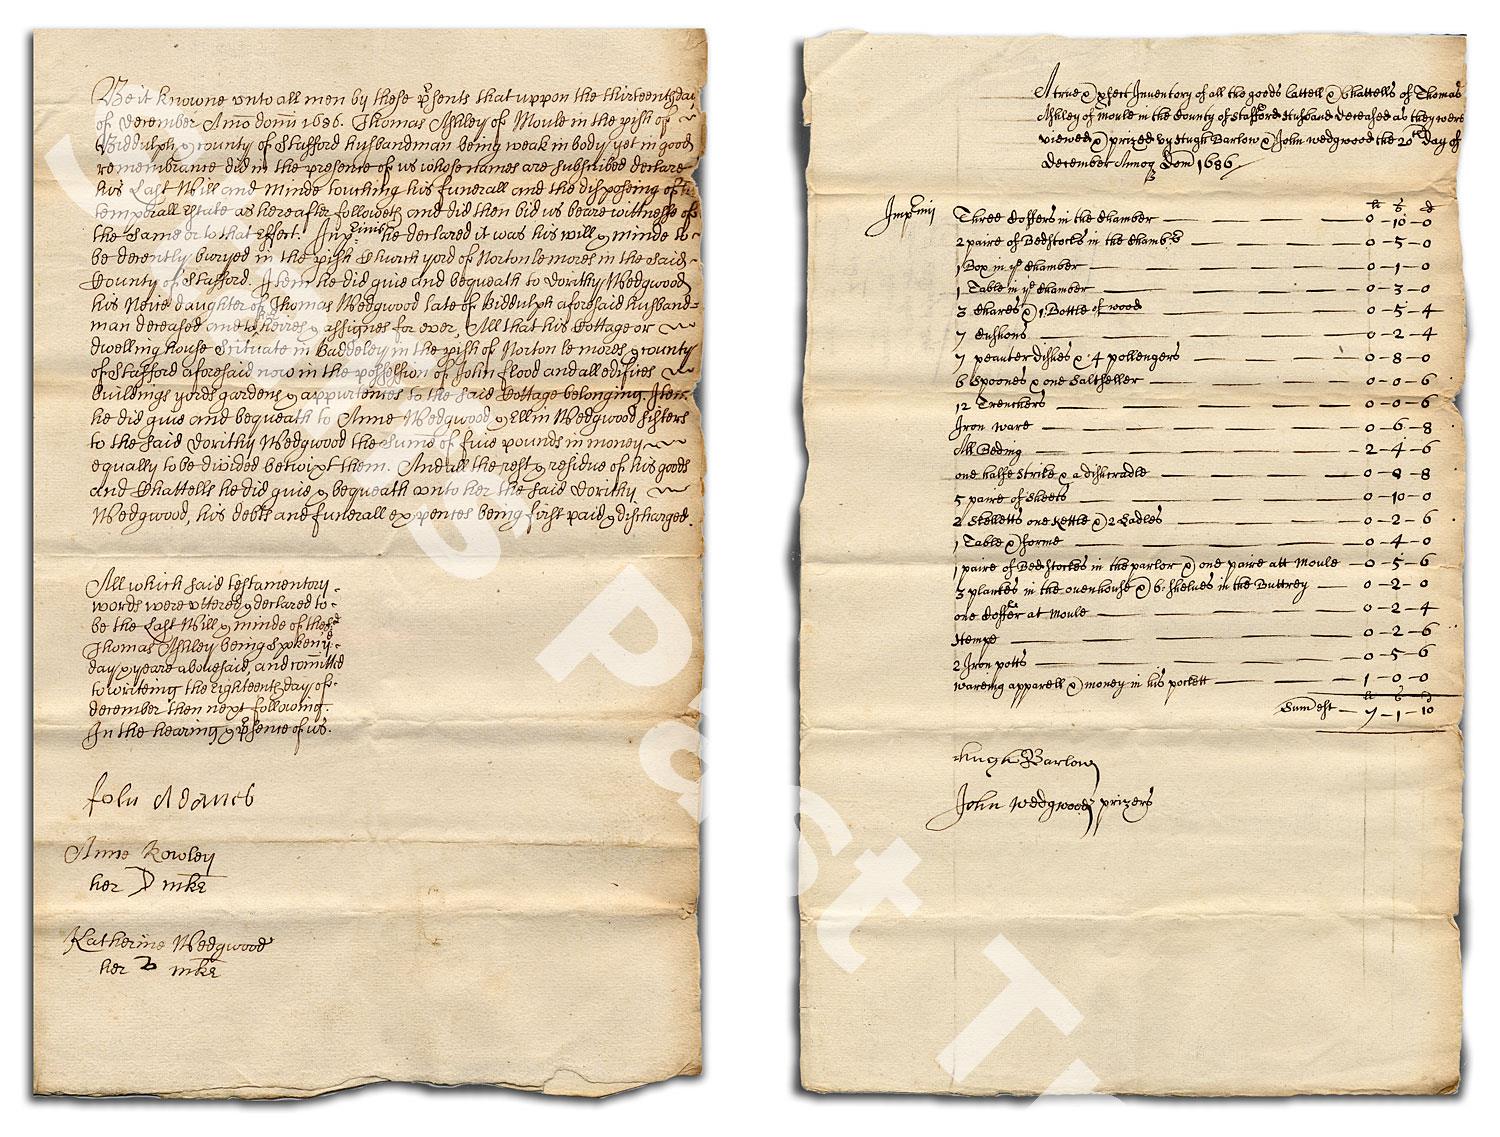 Be it knowne unto all men by these p̱sents that uppon the thirteenth day
of december Anno domi 1686. Thomas Ashley of Moule in the pish of
Biddulph & county of Stafford husbandman being weak in body yet in good
remembrance did in the presence of us whose names are subscribed declare
his Last Will and Minde touching his funerall and the disposing of
temporall Estate as hereafter followeth and did then bid us beare wittnesse of
the same or to that effect. he declared it was his will & minde to
be decently buryed in the pish Church yord of Norton le mores in the said
County of Stafford. Item he did give and bequeath to dorithy Wedgwood
his Neece daughter of Thomas Wedgwood late of Biddulph aforesaid husband-
man deceased and to heires & assignes for ever, All that his Cottage or
dwelling house Scituate in Baddeley in the pish of Norton le mores & county
of Stafford aforesaid now in the possession of John flood and all edifices
buildings yords gardens & appurtences to the said Cottage belonging. Item
he did give and bequeath to Anne Wedgwood & Ellin Wedgwood sisters
to the said dorithy Wedgwood the sume of five pounds in money
equally to be divided betwixt them. And all the rest & residue of his goods
and Chattells he did give & bequeath unto her the said dorithy
Wedgwood, his debts and funerall expences being first paid & discharged.
All which said testamentory
words were uttered & declared to
be the Last Will & minde of the
Thomas Ashley being spoken
day & yeare abovesaid, and comitted
to writeing the eighteenth day of
december then next following.
In the hearing & p̱sence of us.
John Adames
Anne Rowley
her D mke
Katherine Wedgwood
her mke
A true & pfect Inventory of all the goods Cattell & Chattells of Thomas
Ashley of moule in the County of Stafford Husband deceased as they were
viewed & prized by Hugh Barlow & John wedgwood the 20th day of
december Annoq Dom 1686
li s d
Imprmis Three Coffers in the Chamber — 0-10-0
2 paire of Bedstocks in the Chamber — 0-5-0
1 Box in ye Chamber — 0-1-0
1 Table in ye Chamber — 0-3-0
3 Chares & 1 Bottle of wood — 0-5-4
7 Cushions — 0-2-4
7 peauter dishes & 4 pottengers — 0-8-0
6 Spoones & one Saltseller — 0-0-6
12 Trenchers — 0-0-6
Iron ware — 0-6-8
All Beding — 2-4-6
one halfe strike & a dishcradle — 0-0-8
5 paire of Sheets — 0-10-0
2 Skelletts one Kettle & 2 Ladles — 0-2-6
1 Table & forme — 0-4-0
1 paire of Bedstockes in the parlor & one paire att Moule — 0-5-6
3 planckes in the ovenhouse & 6 shelves in the Buttrey — 0-2-0
one Coffer at moule — 0-2-4
Hempe — 0-2-6
2 Iron potts — 0-5-6
wareing apparell & money in his pockett — 1-0-0
li s d
Sum est — 7-1-10
Hugh Barlow
John wedgwood prizers
Past Th